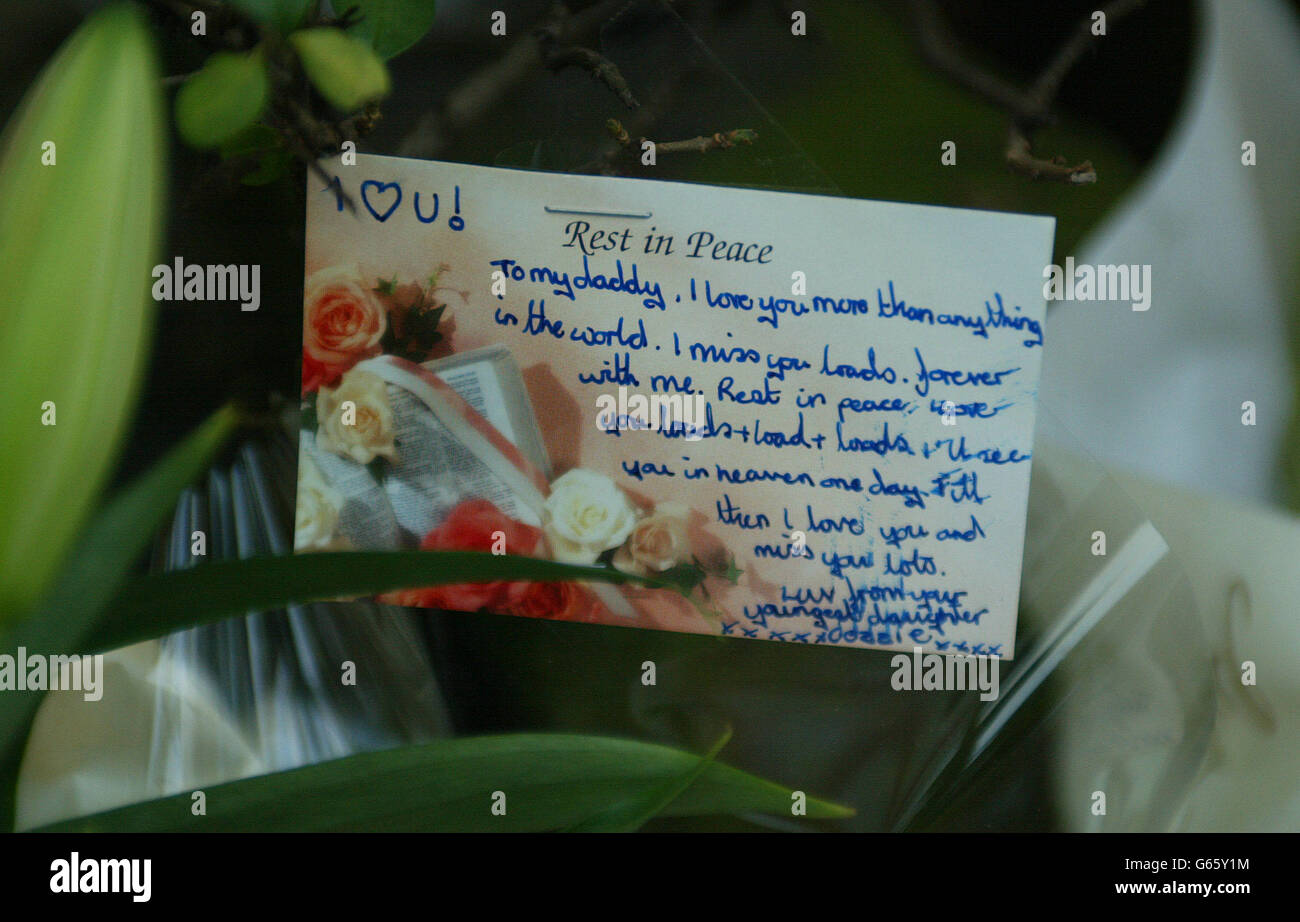 I ♡ U!
Rest in Peace
To my daddy. I love you more than anything
in the world. I miss you loads. forever
with me. Rest in peace,
you loads + load + loads I'll see
you in heaven one day. Till
then I love you and
miss you lots.
Luv from your
youngest daughter
xxxxx xxxx
alamy
alamy
Image ID: G65Y1M
www.alamy.com